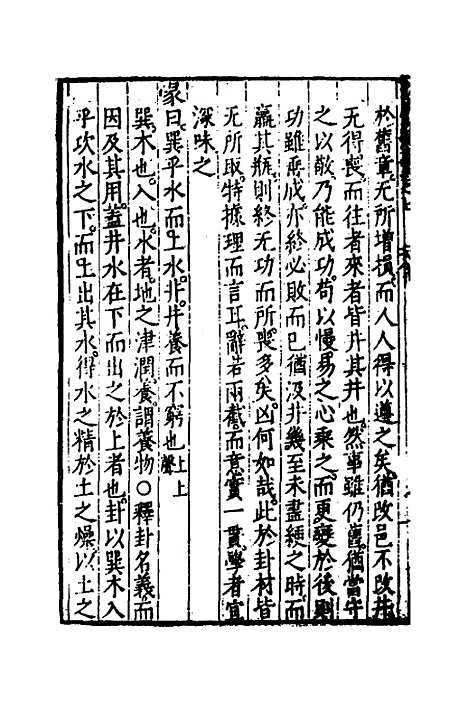 於舊章。无所增損。而人人得以遵之矣。猶改邑不改井
无得喪。而往者來者皆井其井也。然事雖仍舊。猶當守
之以敬。乃能成功。苟以慢易之心乘之。而更變於後。則
功雖垂成。亦終必敗而已。猶汲井幾至。未盡綆之時。而
羸其瓶。則終无功而所喪多矣。凶何如哉。此於卦材皆
无所取。特據理而言耳。辭若兩截。而意實一貫。學者宜
深味之
彖曰。巽乎水而上水。井。井養而不窮也上上聲
巽。木也。入也。水者地之津潤。養。謂養物○釋卦名義。而
因及其用。蓋井水在下而出之於上者也。卦以巽木入
乎坎水之下。而上出其水。得水之精於土之燥。以土之